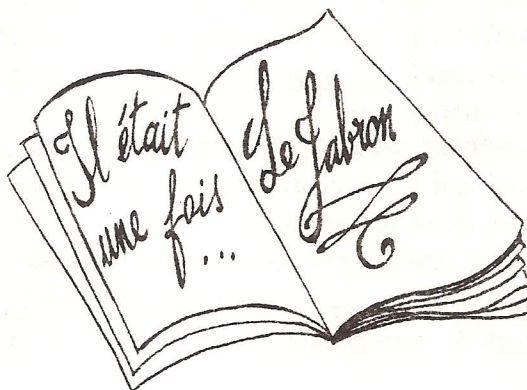 Il était
une fois
...
Le Jabron